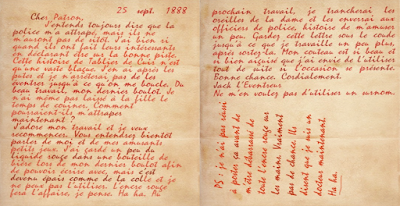 25 sept. 1888
Cher Patron,
J'entends toujours dire que la
police m'a attrapé, mais ils ne
m'auront pas de sitôt. J'ai bien ri
quand ils ont fait leurs intéressants
en déclarant être sur la bonne piste.
Cette histoire de Tablier de Cuir n'est
qu'une vaste blague. J'en ai après les
putes et je n'arrêterai pas de les
éventrer jusqu'à ce qu'on me boucle. Du
beau travail, mon dernier boulot. Je
n'ai même pas laissé à la fille le
temps de couiner. Comment
pourraient-ils m'attraper
maintenant ?
J'adore mon travail et je veux
recommencer. Vous entendrez bientôt
parler de moi et de mes amusants
petits jeux. J'ai gardé un peu du
liquide rouge dans une bouteille de
bière lors de mon dernier boulot afin
de pouvoir écrire avec, mais c'est
devenu épais comme de la colle et je
ne peux pas l'utiliser. L'encre rouge
fera l'affaire, je pense. Ha ha. Au
prochain travail, je trancherai les
oreilles de la dame et les enverrai aux
officiers de police, histoire de m'amuser
un peu. Gardez cette lettre sous le coude
jusqu'à ce que je travaille un peu plus,
après postez-la. Mon couteau est si beau et
si bien aiguisé que j'ai envie de l'utiliser
tout de suite si l'occasion se présente.
Bonne chance. Cordialement
Jack l'Eventreur
Ne m'en voulez pas d'utiliser un surnom.
PS : je n'ai pas réussi
à poster ça avant de
m'être débarrassé de
toute l'encre rouge sur
les mains. Vraiment
pas de chance. Ils
disent que je suis un
docteur maintenant.
Ha ha.